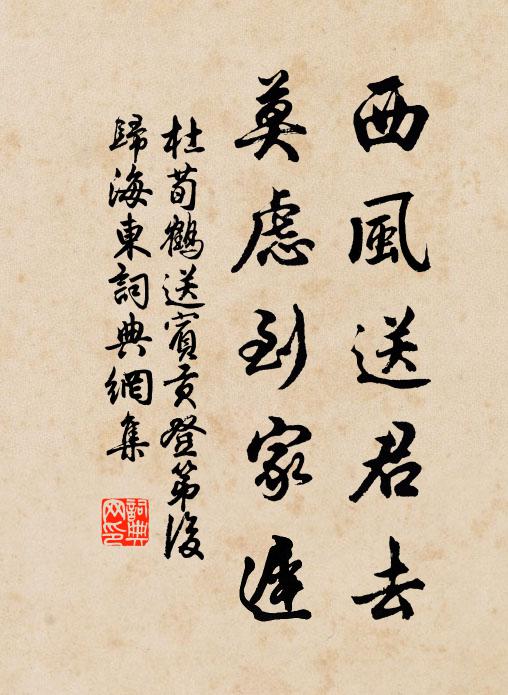 西風送君去
莫慮到家遲
杜荀鶴送賓貢登第後
歸海東詞典網集
詞典
网印